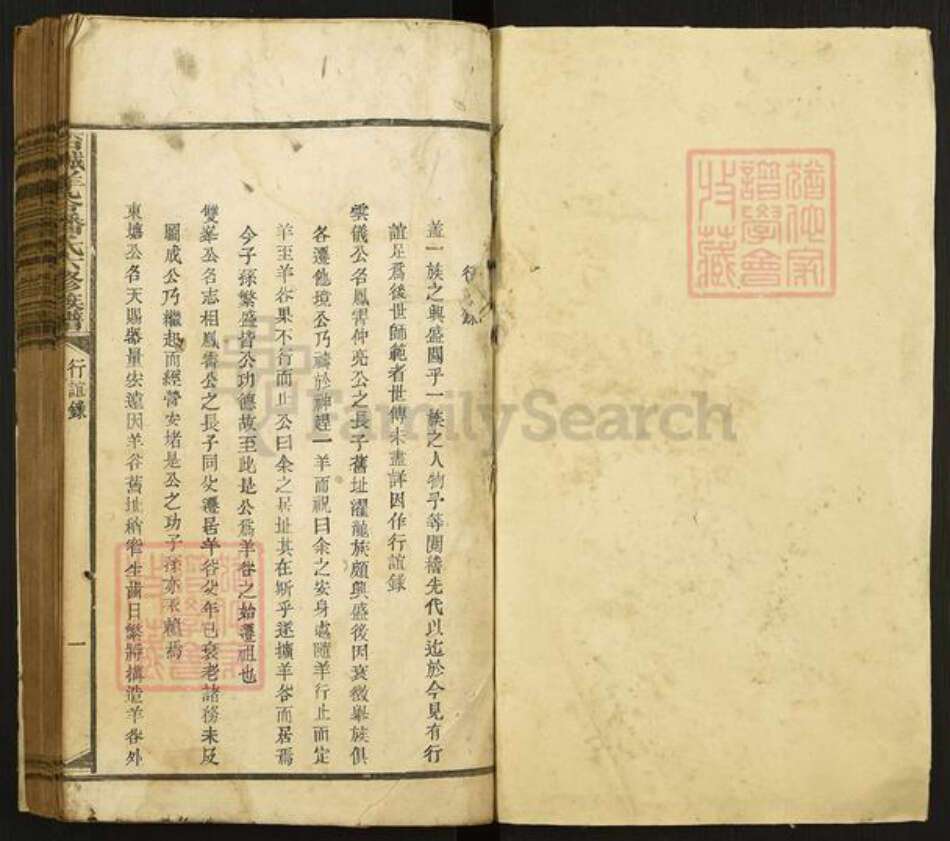 行誼錄
蓋一族之興盛關乎一族之人物乎等閱積先代以迄於今見有行
誼足爲後世師範者世傳未盡詳因作行誼錄
雲儀公名鳳霄仲亮公之長子舊址濯龍族頗興盛後因衰微舉族俱
各遷他境公乃禱於神趕一羊而祝曰余之安身處隨羊行止而定
羊至羊谷果不行而止公曰余之居址其在斯乎遂擴羊谷而居焉
今子孫繁盛皆公功德故至此是公爲羊谷之始遷祖也
雙峯公名志相鳳霄公之長子同父遷居羊谷父年已衰老諸務未及
圖成公乃繼起而經營安堵是公之功子孫亦永賴焉
東塘公名天賜器量宏遠因羊谷舊址稍窄生齒日繁將搆造羊谷外
羊谷潘氏六修族譜
行誼錄
一
猶他家譜學會收藏
FamilySearch